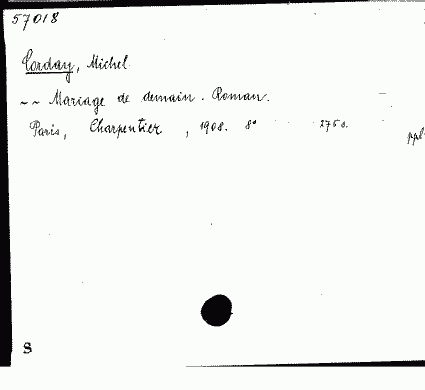 57018
Corday, Michel
~~ Mariage de demain. Roman.
Paris, Charpentier, 1908. 8° 275 s. ppl.
S